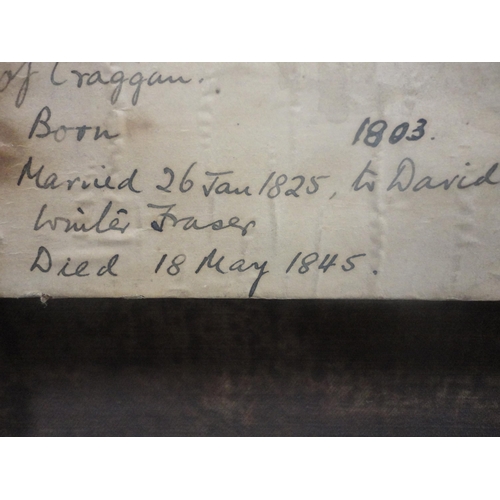 of Craggan.
Born 1803.
Married 26 Jan 1825, to David
Winter Fraser
Died 18 May 1845.